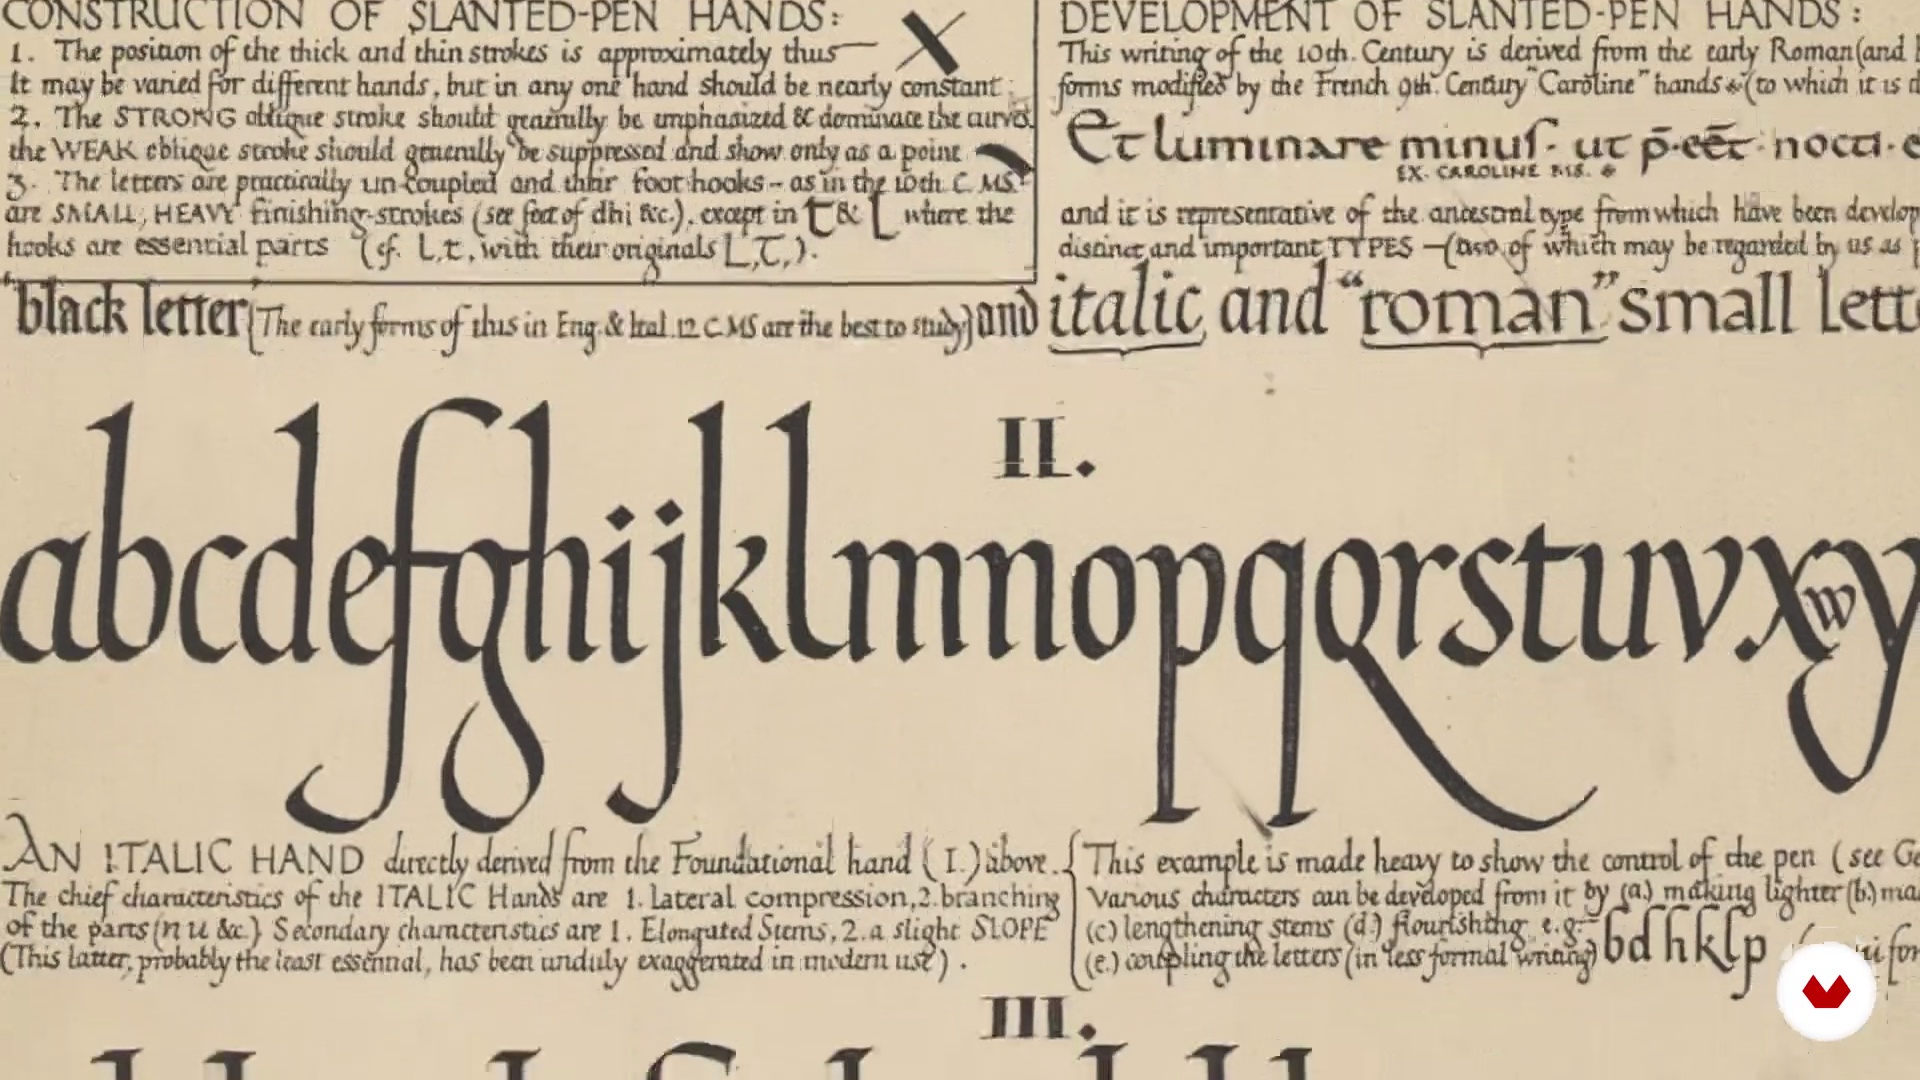 CONSTRUCTION OF SLANTED-PEN HANDS:
1. The position of the thick and thin strokes is approximately thus
It may be varied for different hands, but in any one hand should be nearly constant.
2. The STRONG oblique stroke should generally be emphasized & dominate the curves.
the WEAK oblique stroke should generally be suppressed and show only as a point
3. The letters are practically un-coupled and their foot hooks - as in the 10th C. MS.
are SMALL, HEAVY finishing-strokes (see feet of dhi &c.), except in t & l where the
hooks are essential parts (cf. l,t, with their originals L,T,).
DEVELOPMENT OF SLANTED-PEN HANDS:
This writing of the 10th. Century is derived from the early Roman (and
forms modified by the French 9th. Century "Caroline" hands (to which it is
Et luminare minus. ut p̄.eēt. nocti.
EX. CAROLINE MS.
and it is representative of the ancestral type from which have been develop
distinct and important TYPES — (two of which may be regarded by us as
"black letter (The early forms of this in Eng. & Ital. 12 C MS are the best to study) and italic and "roman" small lett
II.
abcdefghijklmnopqQrstuvxwy
AN ITALIC HAND directly derived from the Foundational hand (I.) above.
The chief characteristics of the ITALIC Hands are 1. lateral compression, 2. branching
of the parts (n u &c.) Secondary characteristics are 1. Elongated Stems, 2. a slight SLOPE
(This latter, probably the least essential, has been unduly exaggerated in modern use).
This example is made heavy to show the control of the pen (see
Various characters can be developed from it by (a.) making lighter (b.)
(c) lengthening stems (d.) flourishing e.g. bdhklp
(e.) coupling the letters (in less formal writing)
III.